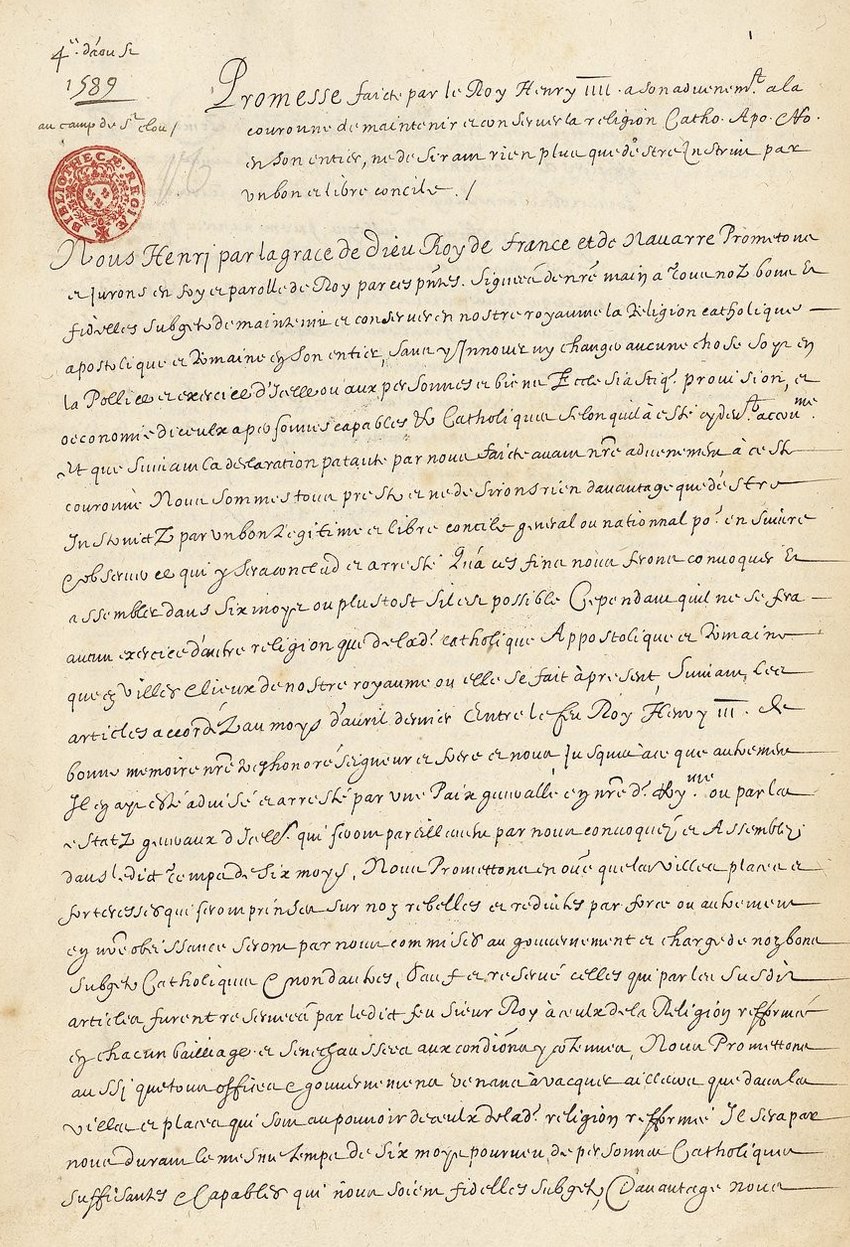 4e. d'aoust
1589
au camp de St clou /
1
BIBLIOTHECÆ REGIÆ
Promesse faicte par le Roy Henry IIII. a son advenemt. a la
couronne de maintenir et conserver la religion Catho. Apo. &Ro.
en son entier, ne desirant rien plus que d'estre Instruit par
un bon et libre concile. /
Nous Henrj par la grace de dieu Roy de france et de Navarre Prometons
et Jurons en foy et parolle de Roy par ces pntes. Signees de nre main a Tous noz bons et
fidelles subgetz de maintenir et conserver en nostre royaume la Religion catholique
apostolique et Romaine en son entier, sans y Innover ny changer aucune chose soyt en
la Pollice et exercice d'Icelle ou aux personnes et biens Ecclesiastiq. provision, et
oeconomie d'iceulx a personnes capables & Catholiques selon quil à esté cy devt. accoume.
Et que suivant la declaration patante par nous faicte avant nre advenement à ceste
couronne Nous sommes tous prestz et ne desirons rien davantage que d'estre
Instruictz par un bon Legitime et libre concile general ou nationnal po. en suivre
& observer ce qui y sera conclud et arresté Qu'a ces fins nous ferons convoquer et
assembler dans six moys ou plustost sil est possible Cependant quil ne se fera
aucun exercice d'autre religion que de lad. catholique Appostolique et Romaine
que es villes & lieux de nostre royaume ou elle se fait à present, suivant les
articles accordéz au moys d'avril dernier Entre le feu Roy Henry III. de
bonne memoire nre treshonoré seigneur et frere et nous, Jusqu'a ce que autrement
Il en ayt esté advisé et arresté par une Paix generalle en nred. Royme. ou par les
estatz generaux d'Icelluy qui seront pareillement par nous convoquez et Assemblez
dans ledict temps de six moys, Nous Promettons en oultre que les villes places et
forteresses qui seront prinses sur noz rebelles et reduites par force ou autrement
en nre obeissance seront par nous commises au gouvernement et charge de noz bons
subgetz Catholiques & non d'autres, sauf et reservé celles qui par les susdits
articles furent reservees par ledict feu sieur Roy à ceulx de la Religion refformée
en chacun bailliage et seneschaussees aux condions y contenues, Nous Promettons
aussi que tous offices & gouvernemens venans à vacquer ailleurs que dans les
villes et places qui sont au pouvoir de ceulx de lad. religion refformée Il sera par
nous durant le mesme temps de six moys pourveu de personnes Catholiques
suffisantes & Capables qui nous soient fidelles subgetz, Davantage nous